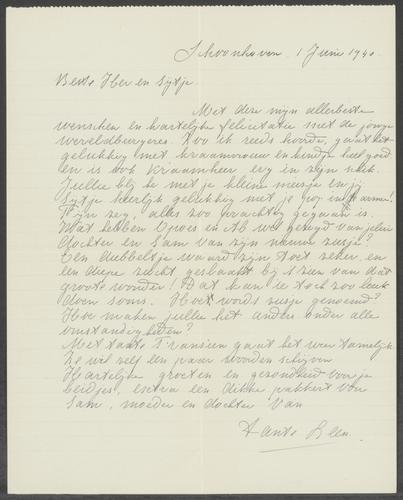 Schoonhoven, 1 Juni 1940
Beste Her en Sijtje
Met deze mijn allerbeste
wenschen en hartelijke felicitatie met de jonge
wereldburgeres. Zoo ik reeds hoorde, gaat het
gelukkig met kraamvrouw en kindje heel goed
en is ook kraamheer erg in zijn nek.
Jullie bij te met je kleine meisje en jij
Sijtje heerlijk gelukkig met je in je armen!
Fijn zeg, alles zoo prachtig gegaan is.
Wat hebben Opoe en Ab wel gezegd van
dochter en Sam van zijn nieuwe zusje?
Een dubbeltje waard zijn snoet zeker en
een diepe zucht geslaakt bij 't zien van dat
groote wonder! Dat kan ie toch zoo leuk
doen soms. Hoe wordt zusje genoemd?
Hoe maken jullie het anders onder alle
omstandigheden?
Met tante Fransien gaat het weer tamelijk
Ze wil zelf een paar woorden schrijven
Hartelijke groeten en gezondheid voor je
beidjes, extra een dikke pakkert voor
Sam, moeder en dochter van
Tante Leen.